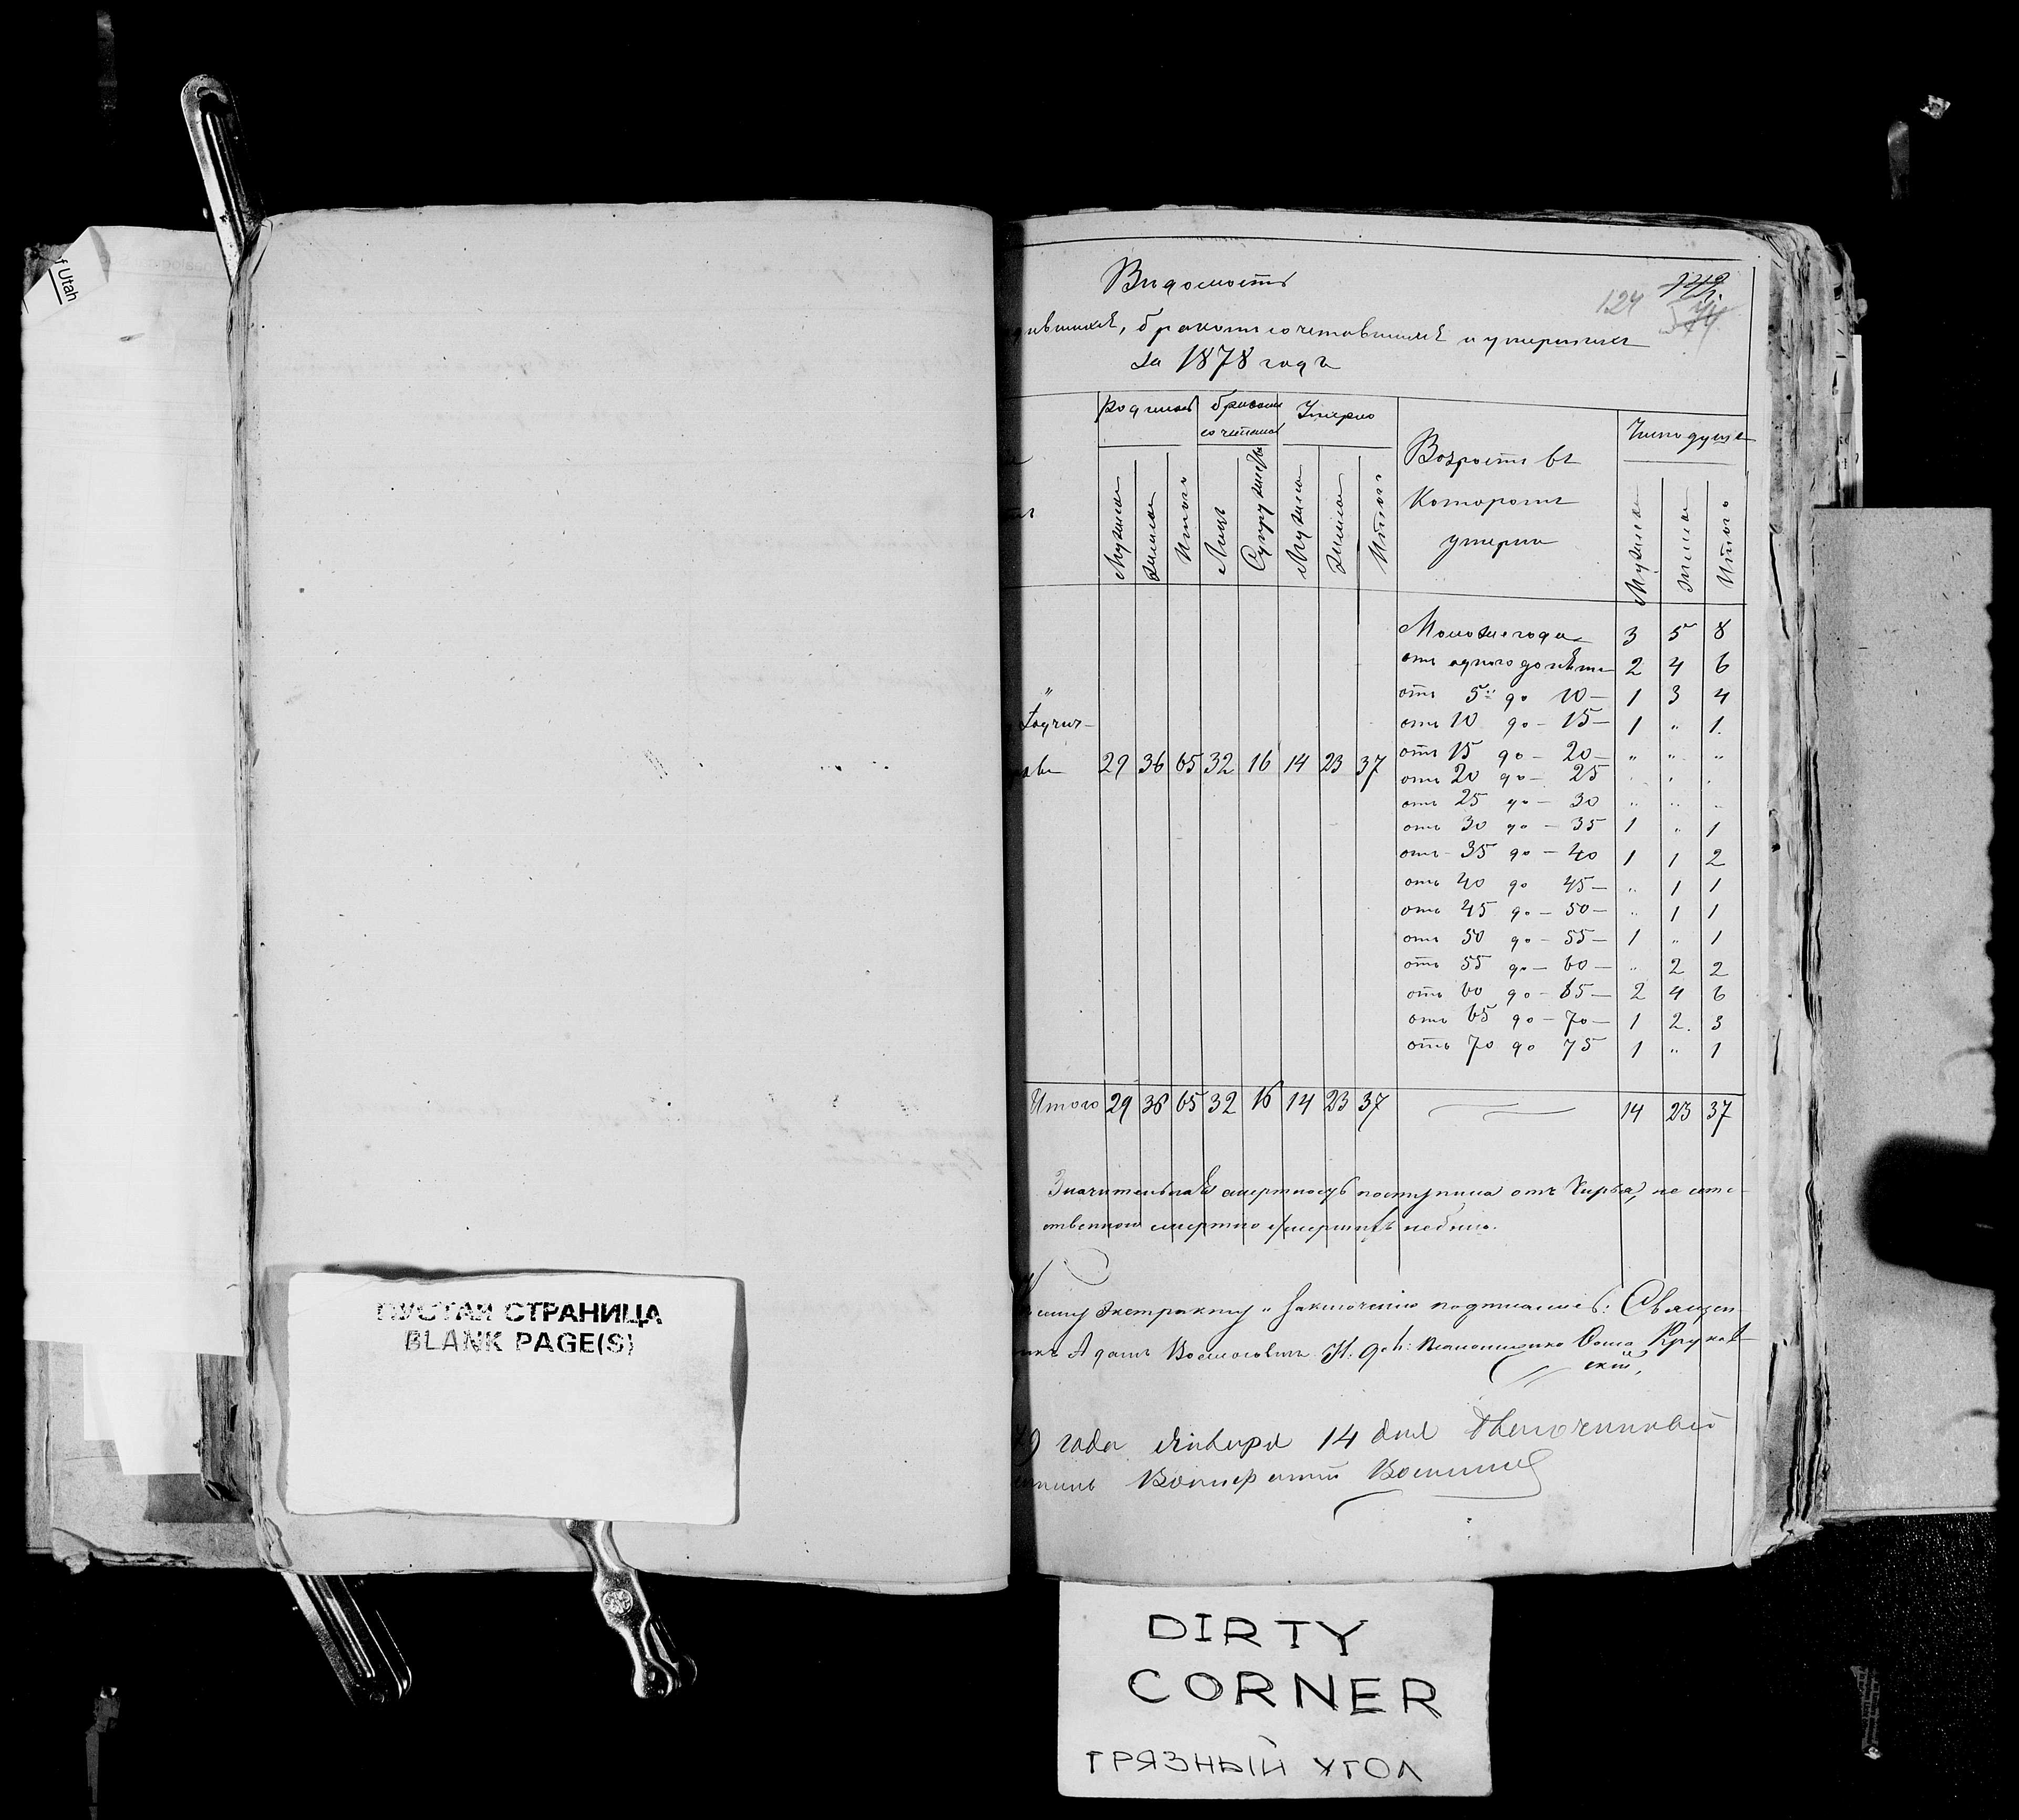 f Utah
ПУСТАЯ СТРАНИЦА
BLANK PAGE(S)
Видомость
124
бракомъ сочетавшихъ и умершихъ
за 1878 годъ
Родилось Бракомъ сочетал Умерло Возрастъ въ которомъ умерли Число душъ
Мужеска Женска Итого Лицъ Супружествъ Мужеска Женска Итого Мужеска Женска Итого
29 36 65 32 16 14 23 37
Моложе года 3 5 8
отъ одного до пяти 2 4 6
отъ 5 до 10 — 1 3 4
отъ 10 до — 15 — 1 " 1.
отъ 15 до — 20 — " " "
отъ 20 до — 25 " " "
отъ 25 до — 30 " " "
отъ 30 до — 35 1 " 1
отъ 35 до — 40 1 1 2
отъ 40 до 45 — " 1 1
отъ 45 до — 50 — " 1 1
отъ 50 до — 55 — 1 " 1
отъ 55 до — 60 — " 2 2
отъ 60 до — 65 — 2 4 6
отъ 65 до — 70 — 1 2. 3
отъ 70 до 75 1 " 1
Итого 29 36 65 32 16 14 23 37 14 23 37
Значительная смертность поступила отъ
смертію умершихъ небыло.
экстракту и заключенію подписались: Священ-
Адамъ
года Января 14 дня Благочинный
DIRTY
CORNER
ГРЯЗНЫЙ УГОЛ